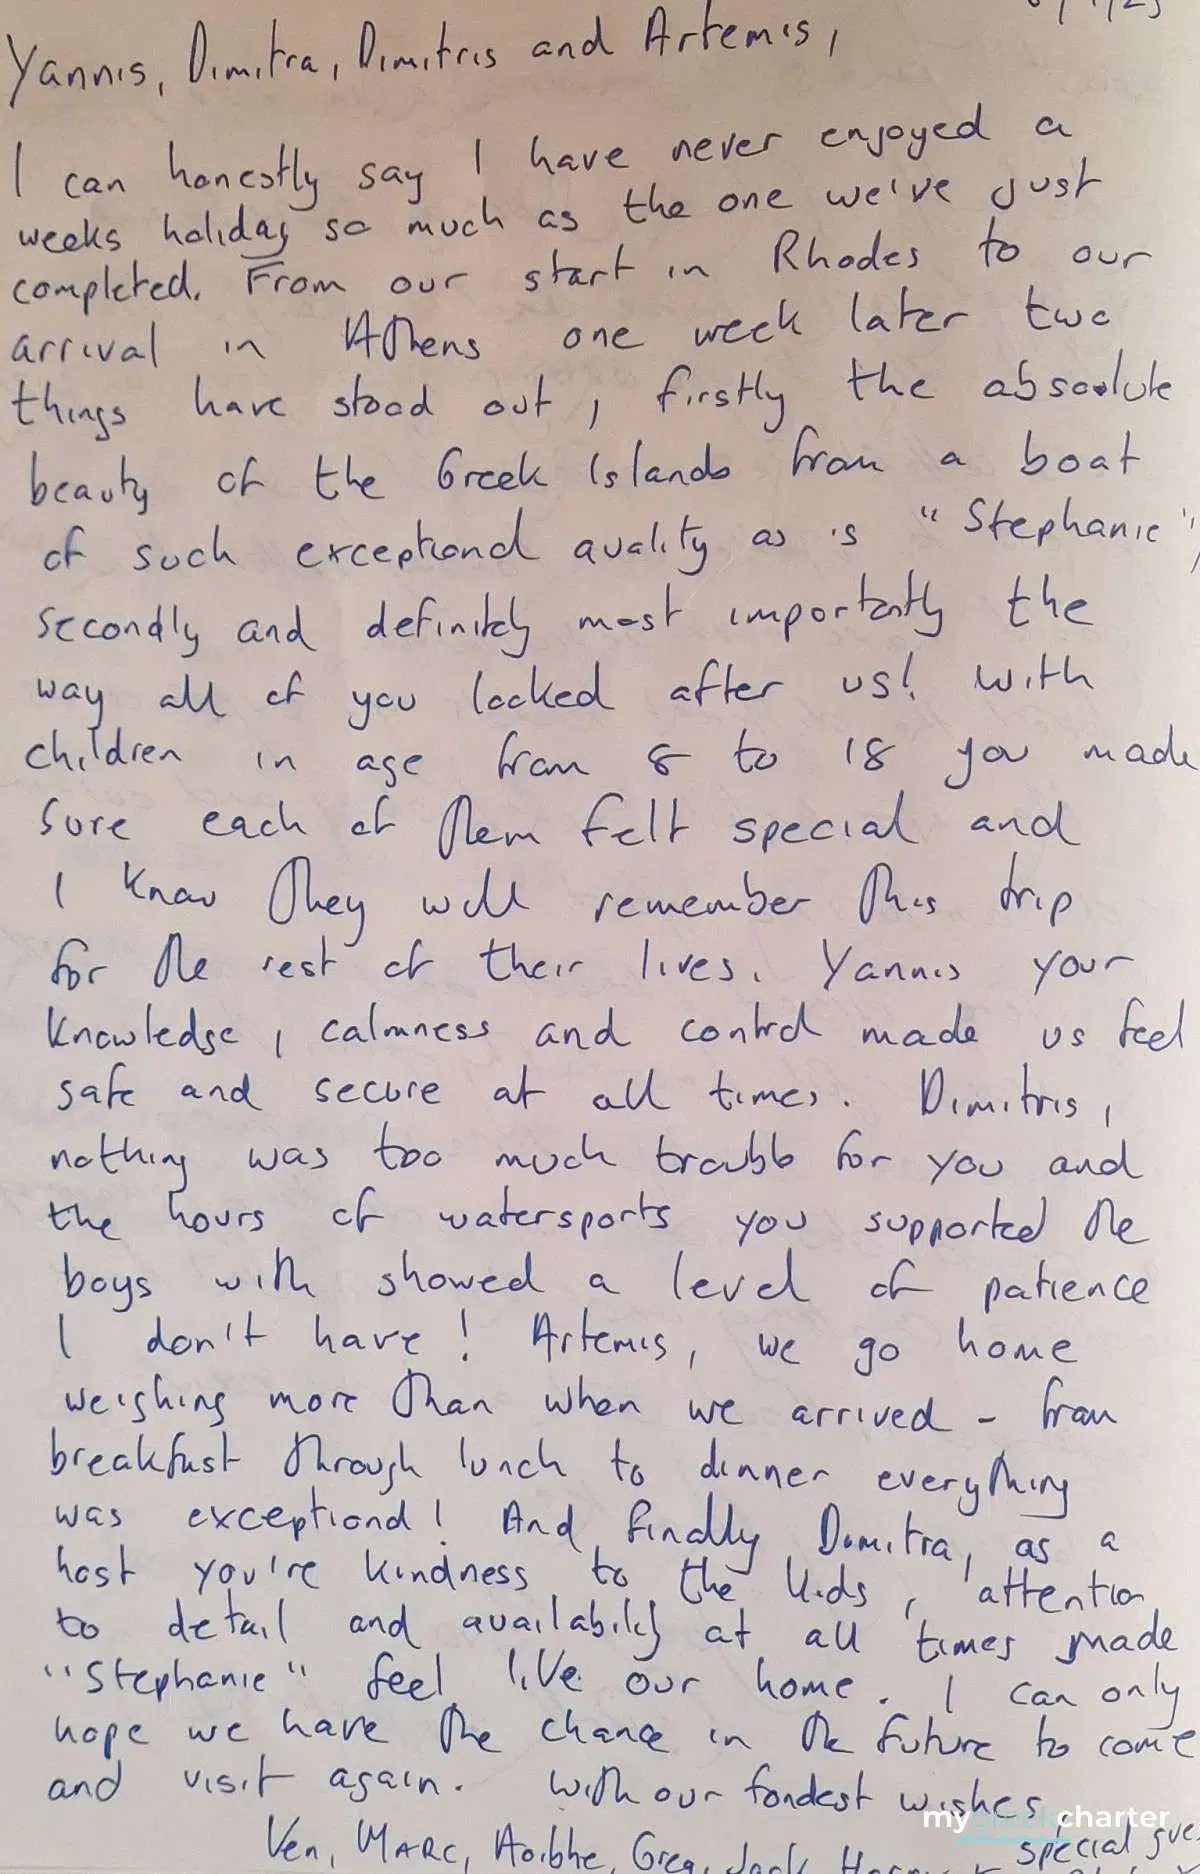 Yannis, Dimitra, Dimitris and Artemis,
I can honestly say I have never enjoyed a
weeks holiday so much as the one we've just
completed. From our start in Rhodes to our
arrival in Athens one week later two
things have stood out, firstly the absolute
beauty of the Greek Islands from a boat
of such exceptional quality as is "Stephanie",
secondly and definitely most importantly the
way all of you looked after us! With
children in age from 8 to 18 you made
sure each of them felt special and
I know they will remember this trip
for the rest of their lives. Yannis your
knowledge, calmness and control made us feel
safe and secure at all times. Dimitris,
nothing was too much trouble for you and
the hours of watersports you supported the
boys with showed a level of patience
I don't have! Artemis, we go home
weighing more than when we arrived - from
breakfast through lunch to dinner everything
was exceptional! And finally Dimitra, as a
host you're kindness to the kids, attention
to detail and availability at all times made
"Stephanie" feel like our home. I can only
hope we have the chance in the future to come
and visit again. With our fondest wishes
mygreekcharter
Ven, MARC, Aoibhe, Greg, Jack, special